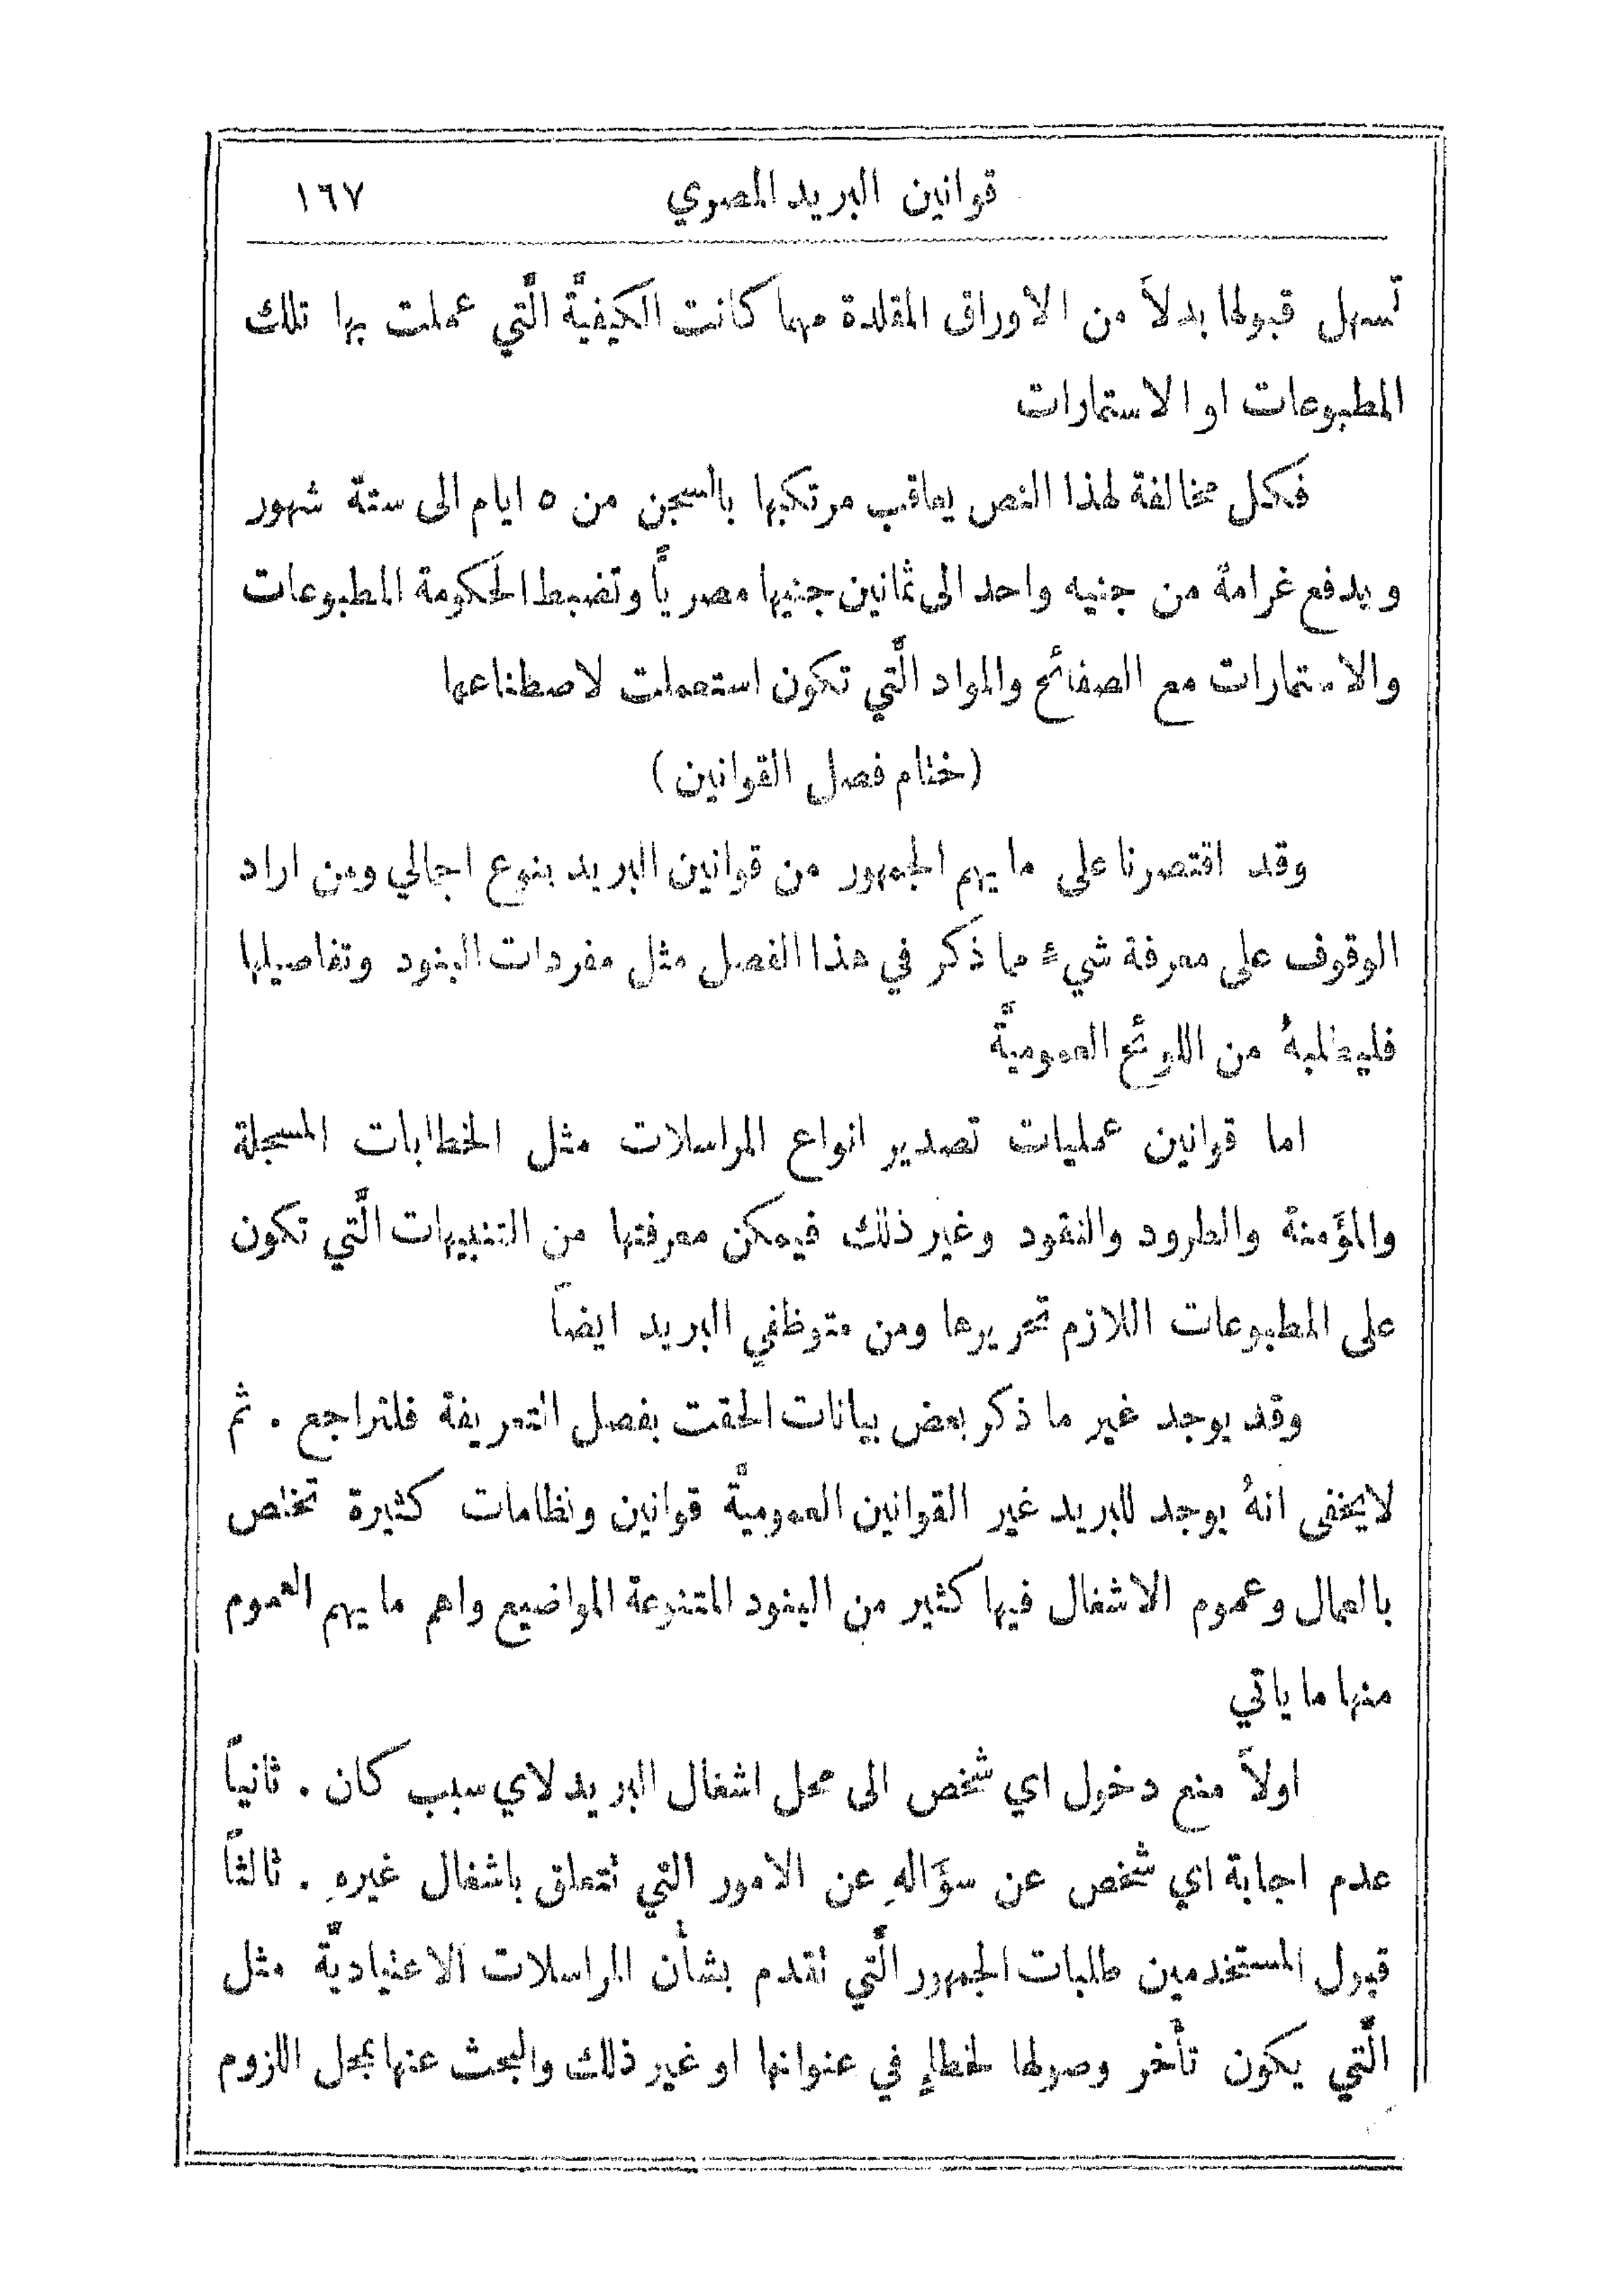 قوانين البريد المصري ١٦٧
تسهل قبولها بدلاً من الاوراق المقلدة مهما كانت الكيفيَّة الَّتي عملت بها تلك
المطبوعات او الاستمارات
فكل مخالفة لهذا النص يعاقب مرتكبها بالسجن من ٥ ايام الى ستة شهور
ويدفع غرامة من جنيه واحد الى ثمانين جنيها مصريًّا وتضبط الحكومة المطبوعات
والاستمارات مع الصفائح والمواد الَّتي تكون استعملت لاصطناعها
(ختام فصل القوانين)
وقد اقتصرنا على ما يهم الجمهور من قوانين البريد بنوع اجمالي ومن اراد
الوقوف على معرفة شيءٍ مما ذكر في هذا الفصل مثل مفردات البنود وتفاصيلها
فليطلبهُ من اللوئح العموميَّة
اما قوانين عمليات تصدير انواع المراسلات مثل الخطابات المسجلة
والمؤَمنة والطرود والنقود وغير ذلك فيمكن معرفتها من التنبيهات الَّتي تكون
على المطبوعات اللازم تحريرها ومن متوظفي البريد ايضاً
وقد يوجد غير ما ذكر بعض بيانات الحقت بفصل التعريفة فلتراجع . ثم
لايخفى انهُ يوجد للبريد غير القوانين العموميَّة قوانين ونظامات كثيرة تختص
بالعمال وعموم الاشغال فيها كثير من البنود المتنوعة المواضيع واهم ما يهم العموم
منها ما ياتي
اولاً منع دخول اي شخص الى محل اشغال البريد لاي سبب كان . ثانياً
عدم اجابة اي شخص عن سؤَالهِ عن الامور التي تتعلق باشغال غيرهِ . ثالثاً
قبول المستخدمين طلبات الجمهور الَّتي تقدم بشأن المراسلات الاعتياديَّة مثل
الَّتي يكون تأخر وصولها لخطإٍ في عنوانها او غير ذلك والبحث عنها بمحل اللزوم